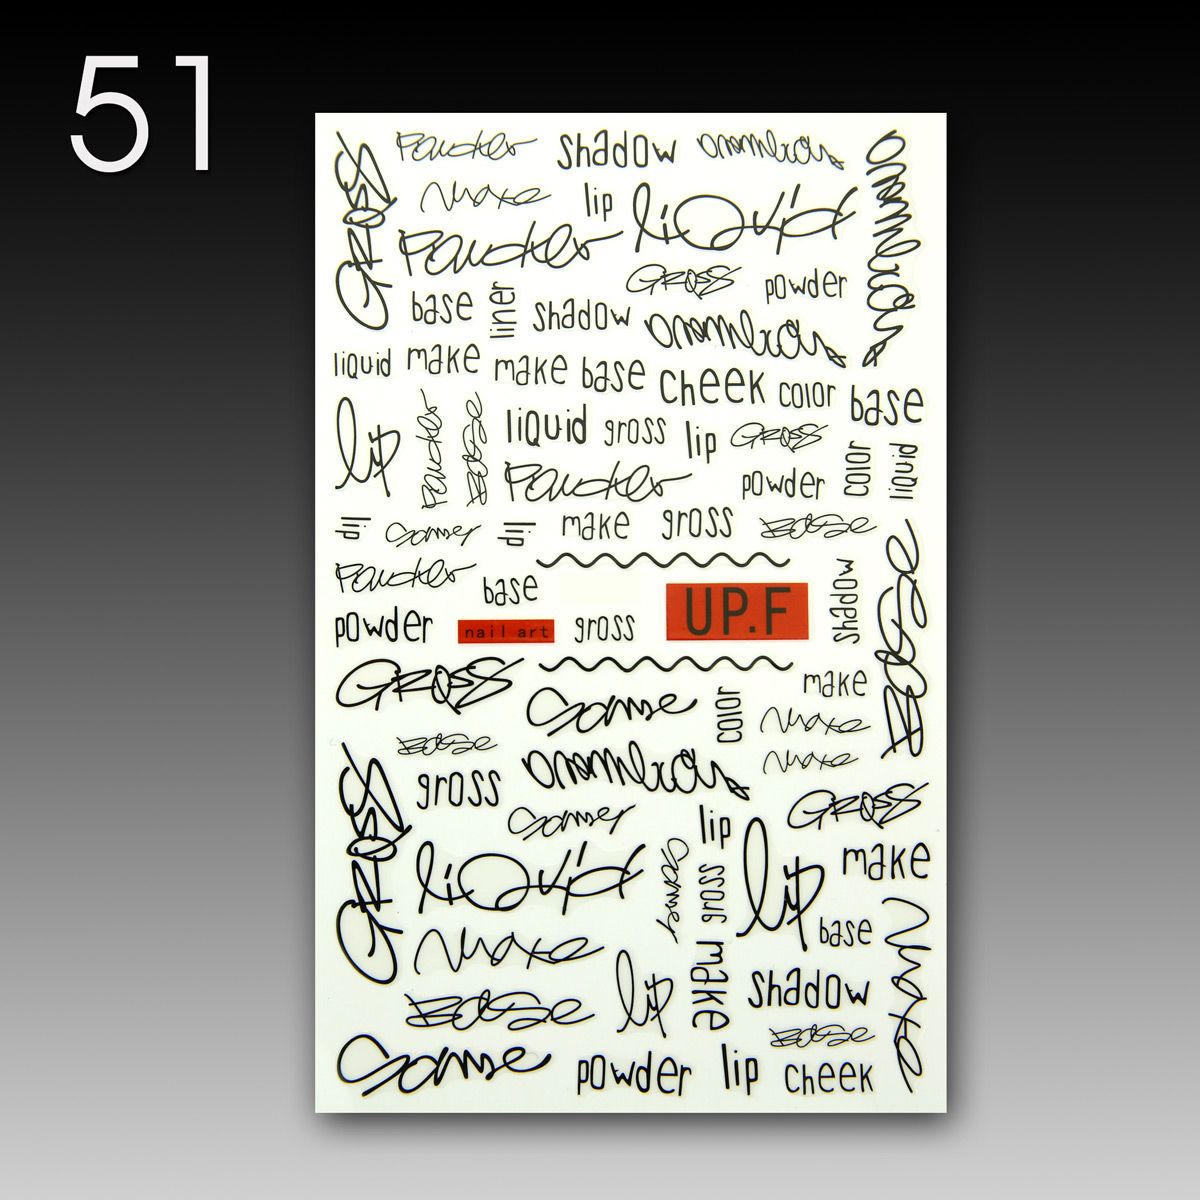 51
GROSS
Powder shadow
make lip liquid
Powder
GROSS powder
base liner shadow
liquid make make base cheek color base
lip Powder Base liquid gross lip GROSS color liquid
Powder powder
lip lip make gross Base
Powder base shadow Base
powder nail art gross UP.F
GROSS color make
make
Base make
GROSS gross GROSS
lip
liquid gross lip make
base make
make lip make shadow
Base Base
powder lip cheek